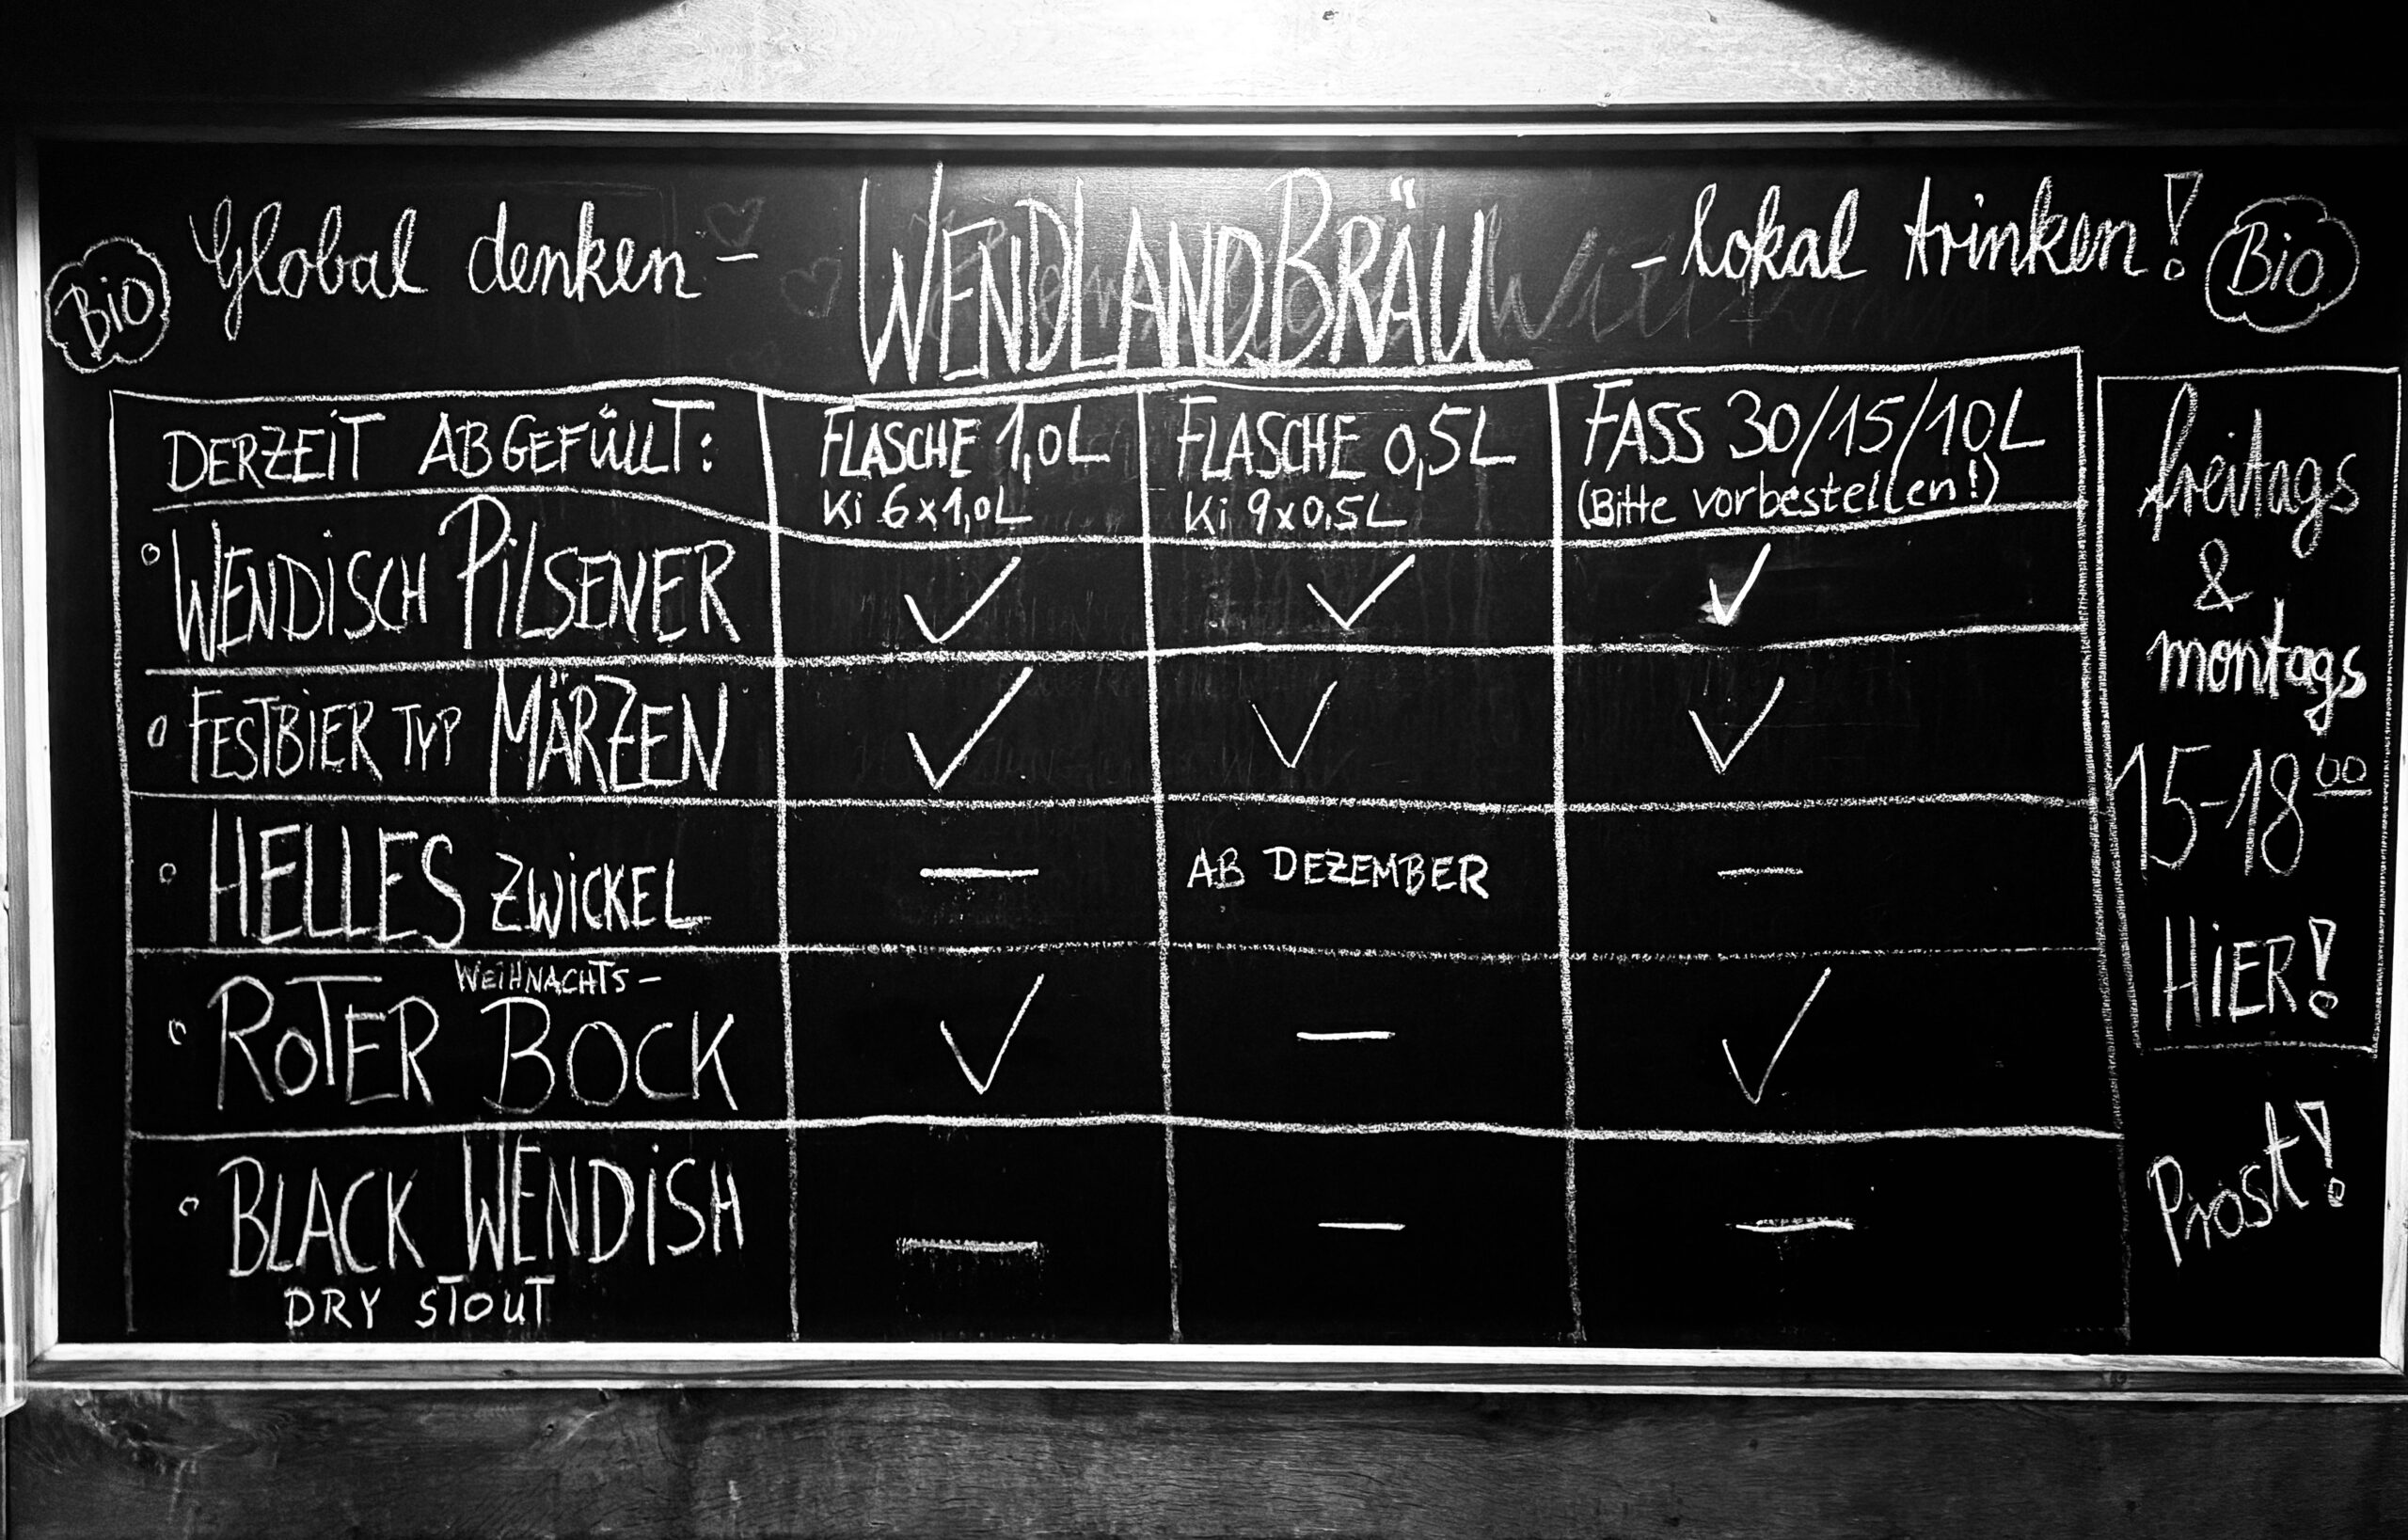 Bio Global denken - WENDLANDBRÄU - lokal trinken! Bio
DERZEIT ABGEFÜLLT: FLASCHE 1,0L FLASCHE 0,5L FASS 30/15/10L
Ki 6x1,0L Ki 9x0,5L (Bitte vorbestellen!)
WENDISCH PILSENER ✓ ✓ ✓
FESTBIER TYP MÄRZEN ✓ ✓ ✓
HELLES ZWICKEL — AB DEZEMBER —
WEIHNACHTS-
ROTER BOCK ✓ — ✓
BLACK WENDISH — — —
DRY STOUT
freitags
&
montags
15-18 00
HIER!
Prost!